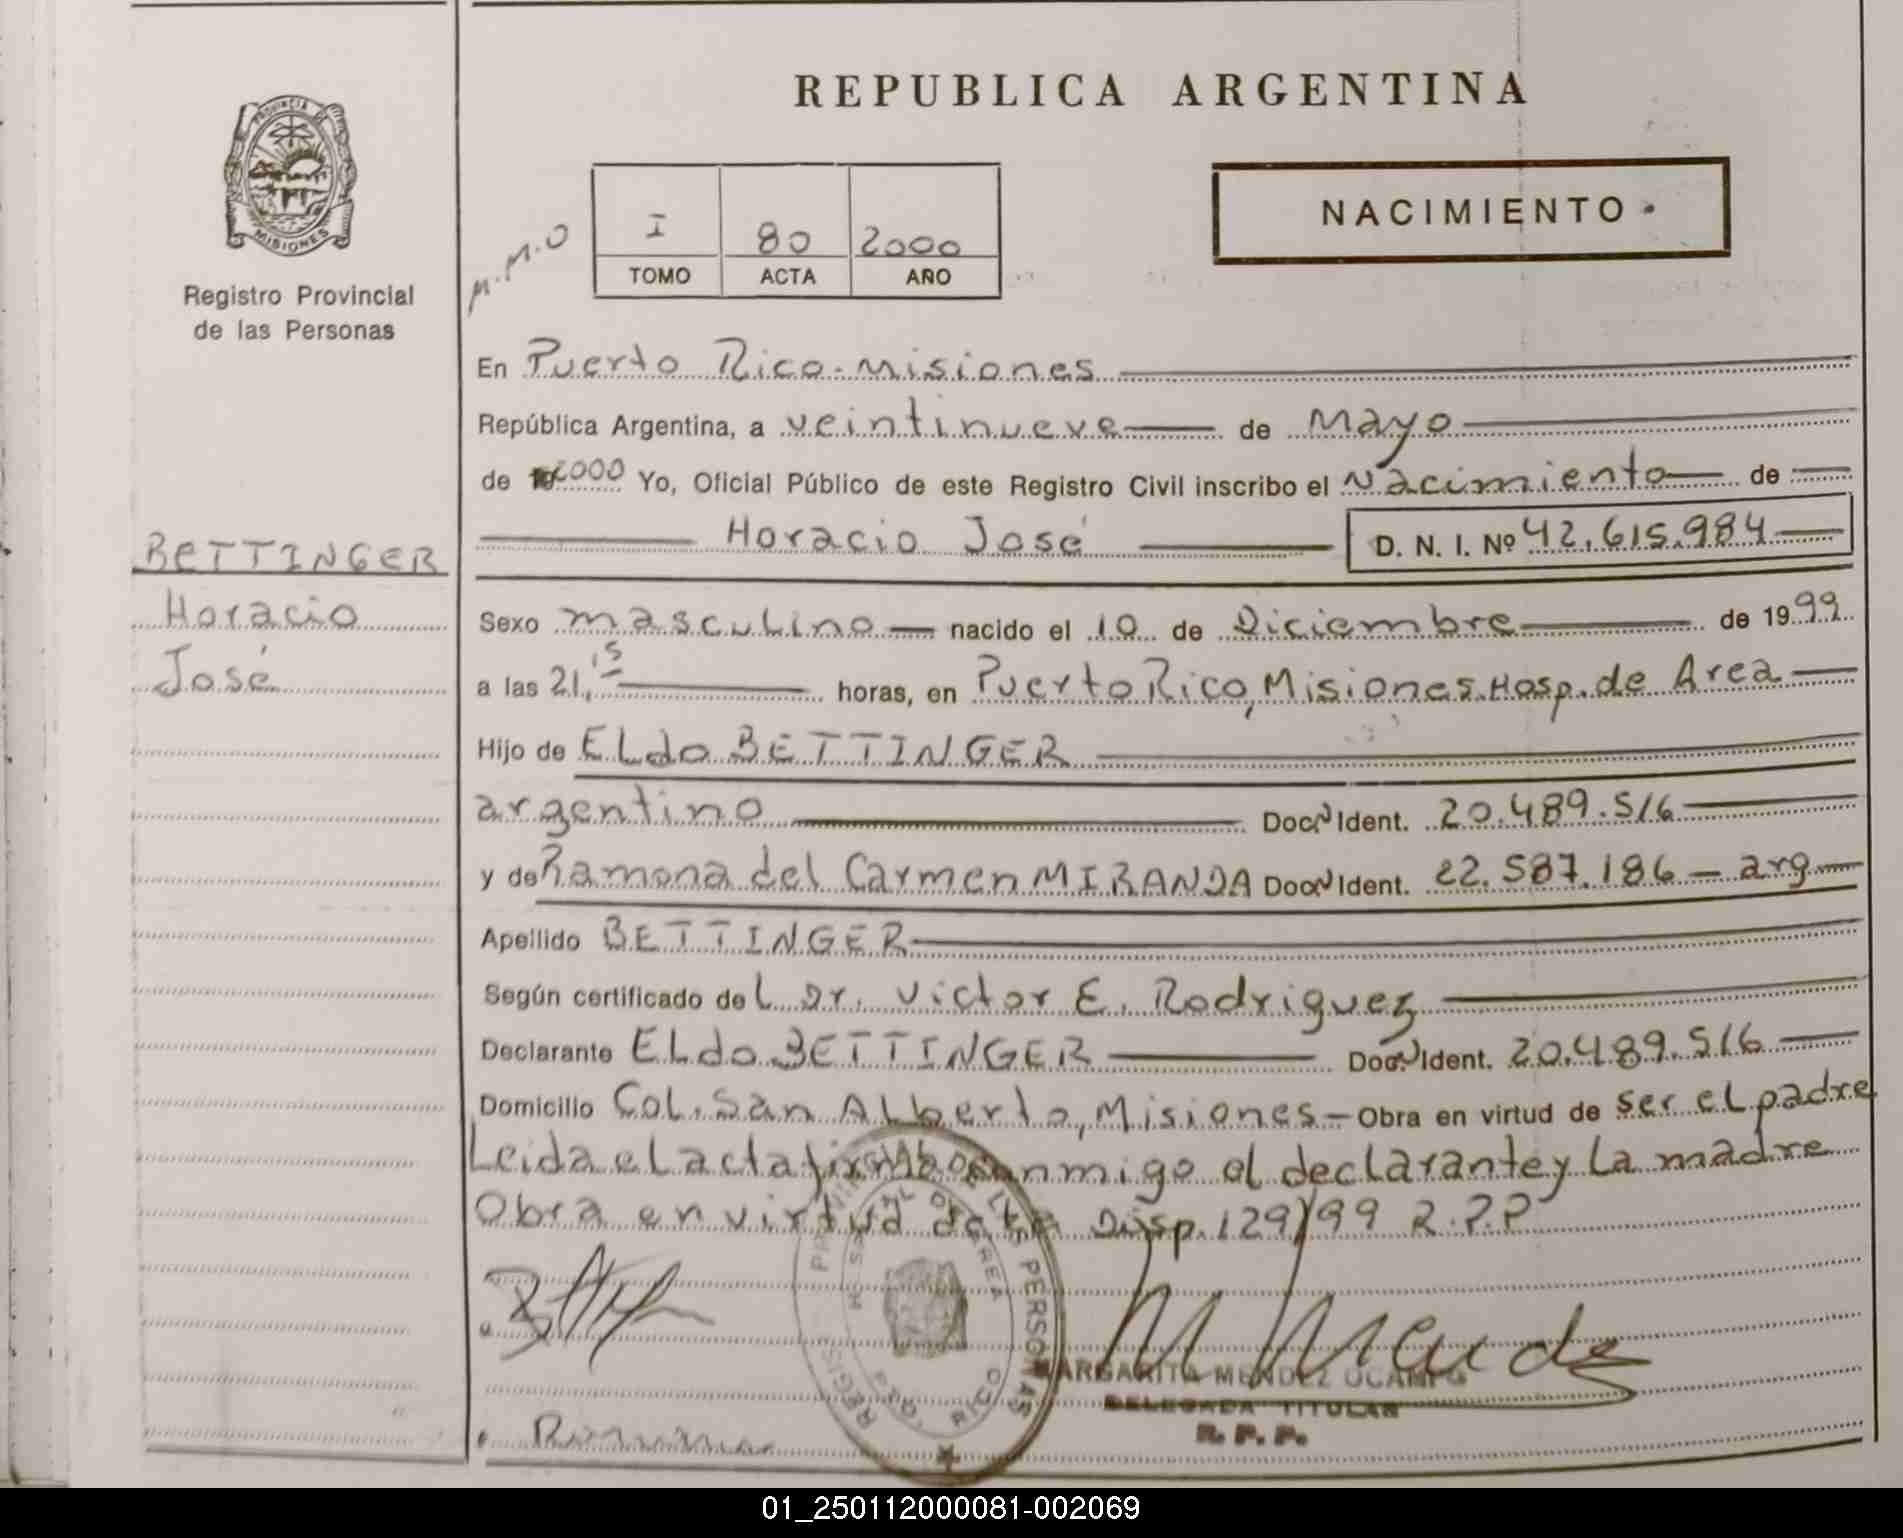 REPUBLICA ARGENTINA
PROVINCIA DE
MISIONES
Registro Provincial
de las Personas
M.M.O
I 80 2000
TOMO ACTA AÑO
NACIMIENTO
En Puerto Rico - Misiones
República Argentina, a veintinueve de Mayo
de 2000 Yo, Oficial Público de este Registro Civil inscribo el Nacimiento de
Horacio José D. N. I. Nº 42.615.984
BETTINGER
Horacio
José
Sexo masculino nacido el 10 de Diciembre de 1999
a las 21,15 horas, en Puerto Rico, Misiones. Hosp. de Area
Hijo de ELdo BETTINGER
argentino Doc. Ident. 20.489.516
y de Ramona del Carmen MIRANDA Doc. Ident. 22.587.186 - arg
Apellido BETTINGER
Según certificado del Dr. Victor E. Rodriguez
Declarante ELdo BETTINGER Doc. Ident. 20.489.516
Domicilio Col. San Alberto, Misiones - Obra en virtud de ser el padre
Leida el acta firman conmigo el declarante y La madre
Obra en virtud de la Disp. 129/99 R.P.P
REGIS PROVIN DE LAS PERSONAS
HOSPITAL DE AREA
PTO. RICO
MARGARITA MENDEZ OCAMPO
DELEGADA TITULAR
R. P. P.
01_250112000081-002069